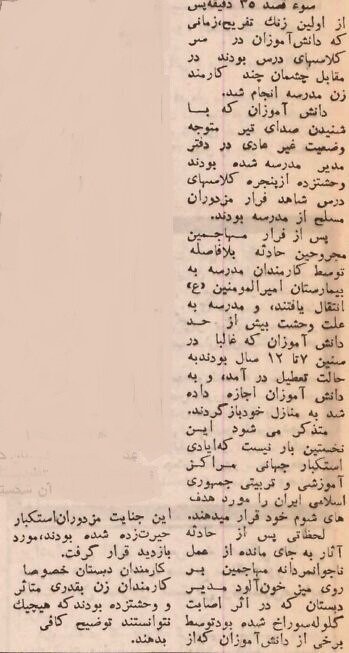 سوء قصد ۳۵ دقیقه پس
از اولین زنگ تفریح، زمانی
که دانش‌آموزان در سر
کلاسهای درس بودند در
مقابل چشمان چند کارمند
زن مدرسه انجام شد.
دانش آموزان که با
شنیدن صدای تیر متوجه
وضعیت غیر عادی در دفتر
مدیر مدرسه شده بودند
وحشتزده ازپنجره کلاسهای
درس شاهد فرار مزدوران
مسلح از مدرسه بودند.
پس از فرار مهاجمین
مجروحین حادثه بلافاصله
توسط کارمندان مدرسه به
بیمارستان امیرالمومنین (ع)
انتقال یافتند، و مدرسه به
علت وحشت بیش از حد
دانش آموزان که غالبا در
سنین ۷ تا ۱۲ سال بودندبه
حالت تعطیل در آمد، و به
دانش آموزان اجازه داده
شد به منازل خودبازگردند.
متذکر می شود این
نخستین بار نیست که‌ایادی
استکبار جهانی مراکز
آموزشی و تربیتی جمهوری
اسلامی ایران را مورد هدف
های شوم خود قرار میدهند.
لحظاتی پس از حادثه
آثار به جای مانده از عمل
ناجوانمردانه مهاجمین بر
روی میز خون‌آلود مدیر
دبستان که در اثر اصابت
گلوله‌سوراخ شده بودتوسط
برخی از دانش‌آموزان که‌از
این جنایت مزدوران‌استکبار
حیرت‌زده شده بودند،مورد
بازدید قرار گرفت.
کارمندان دبستان خصوصا
کارمندان زن بقدری متاثر
و وحشتزده بودندکه هیچیک
نتوانستند توضیح کافی
بدهند.